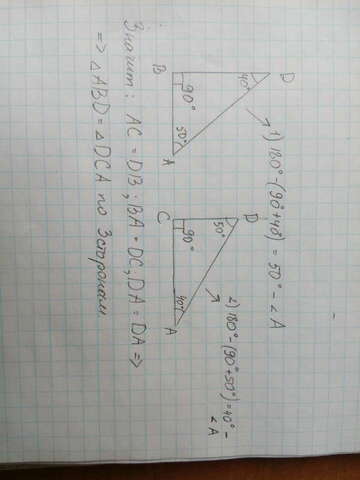 1) 180° - (90° + 40°) = 50° - ∠A
D
40°
90°
50°
B
A
2) 180° - (90° + 50°) = 40° -
∠A
D
50°
90°
40°
C
A
Значит: AC = DB; BA = DC, DA = DA =>
=> △ABD = △DCA по 3 сторонам